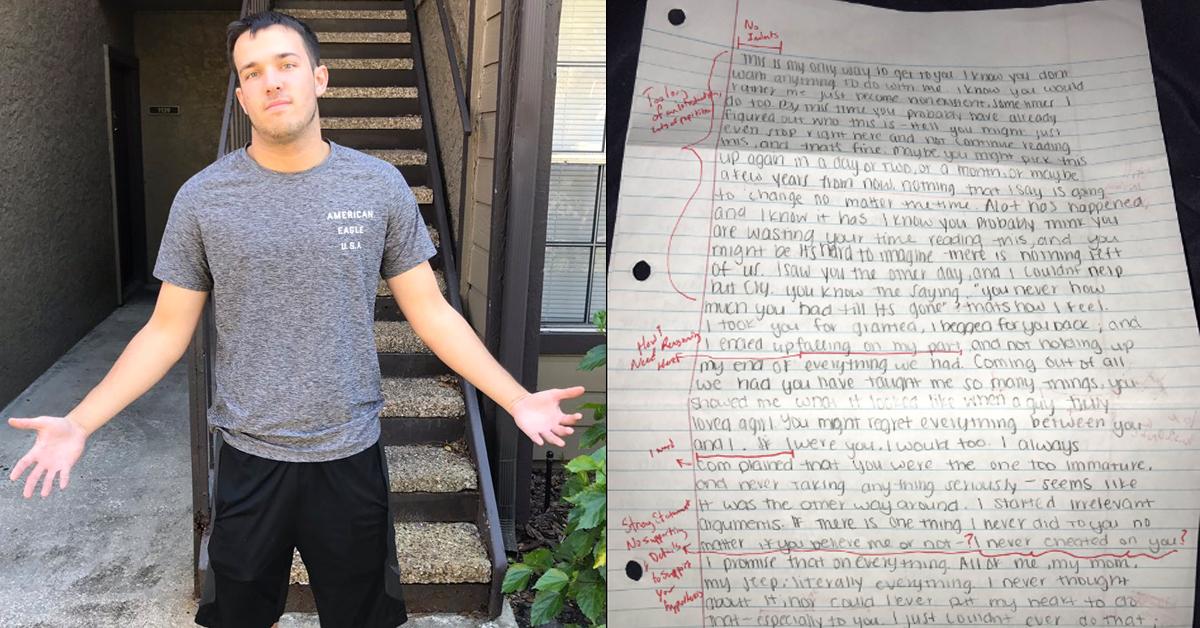 AMERICAN
EAGLE
U.S.A
No
Indents
This is my only way to get to you I know you dont
want anything to do with me. I know you would
rather me just become nonexistent. Sometimes I
do too. By this time you probably have already
figured out who this is - Hell you might just
even stop right here and not continue reading
this, and thats fine. maybe you might pick this
up again in a day or two, or a month, or maybe
a few years from now. nothing that I say is going
to change no matter the time. Alot has happened,
and I know it has. I know you probably think you
are wasting your time reading this, and you
might be. Its hard to imagine there is nothing left
of us. I saw you the other day, and I couldnt help
but cry. you know the saying, "you never how
much you had till its gone" thats how I feel.
I took you for granted, I begged for you back, and
I ended up falling on my part, and not holding up
my end of everything we had. Coming out of all
we had you have taught me so many things, you
showed me what it looked like when a guy truly
loved a girl. You might regret everything between you
and I. If I were you, I would too. I always
complained that you were the one too immature,
and never taking anything seriously - seems like
it was the other way around. I started irrelevant
arguments. If there is one thing I never did to you no
matter if you believe me or not -? I never cheated on you?
I promise that on everything. All of me, my mom,
my step, literally everything. I never thought
about it, nor could I ever put my heart to do
that - especially to you. I just couldnt ever do that.
Too long
of
lots of repetition
How?
Need Reasoning
Here!
Strong Statement
No supporting
Details
to support
your
hypothesis